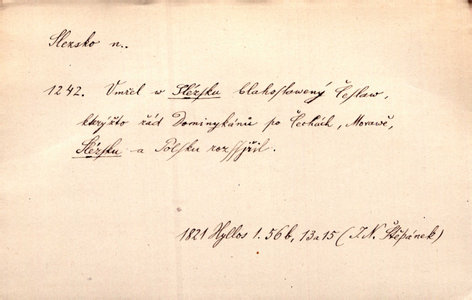 Slezsko n..
1242. Vmřel w Slézsku blahoslawený Česlaw,
kterýžto řád Dominykánů po Čechách, Morawě,
Slézsku a Polsku rozssjřil.
1821 Hyllos 1. 56b, 13a15 (J. N. Štěpánek)